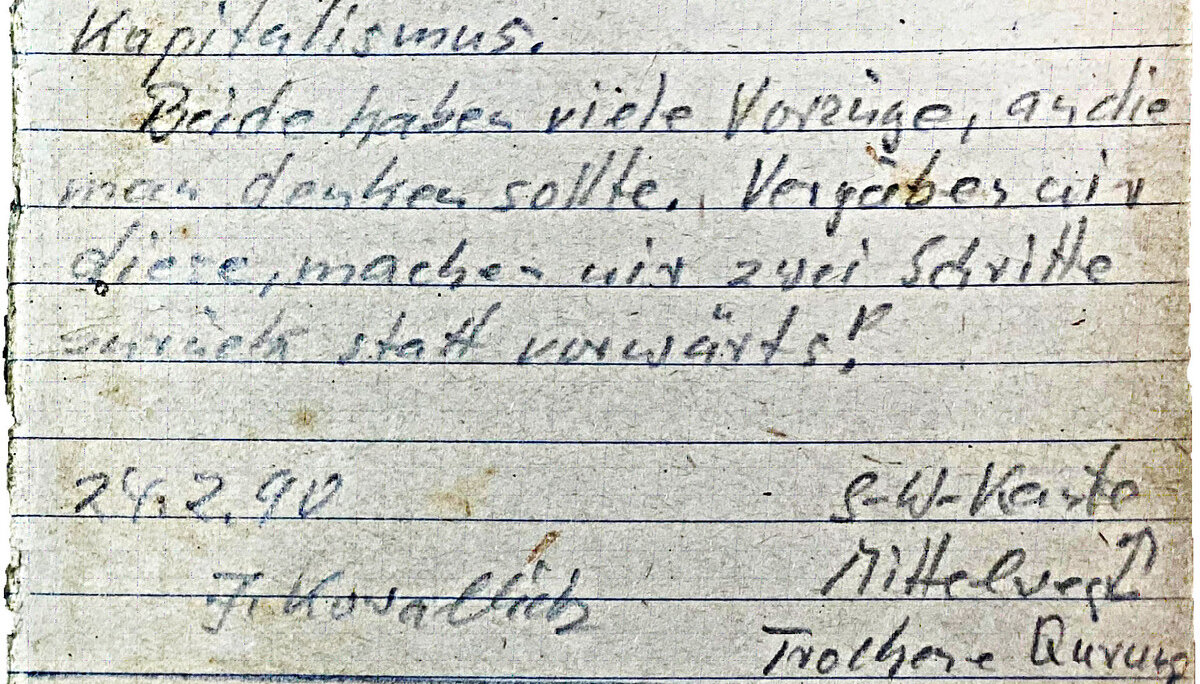 Kapitalismus.
Beide haben viele Vorzüge, an die
man denken sollte. Vergäben wir
diese, machen wir zwei Schritte
zurück statt vorwärts!
24.2.90
S-W-Kante
J. Kowallick
Mittelweg
Trockene